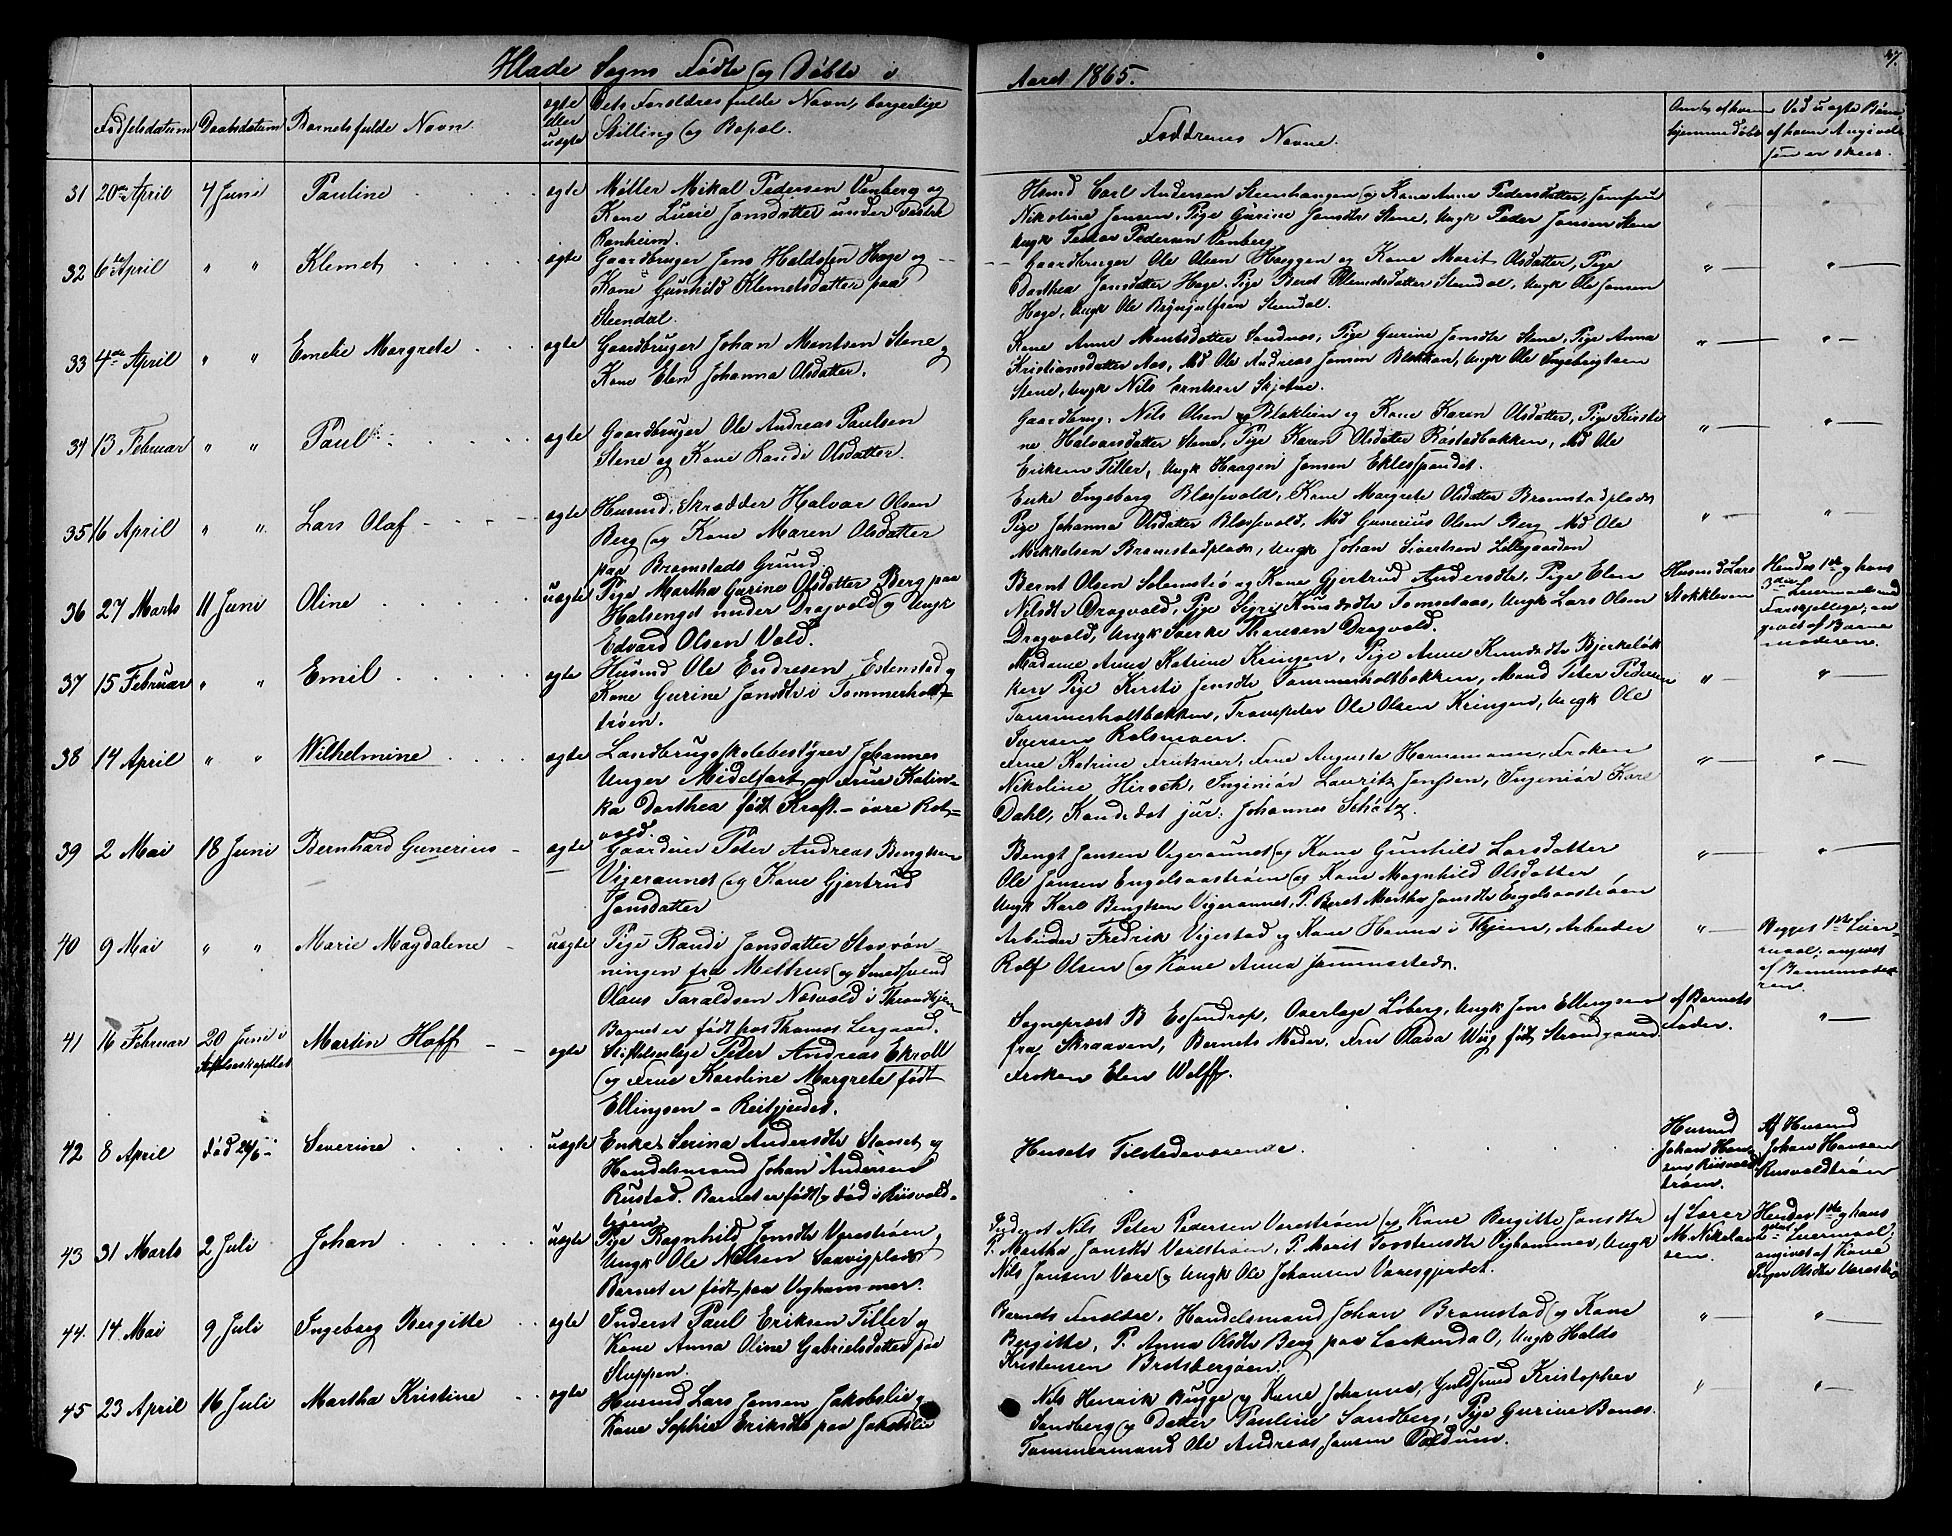 Hlade Sogns Fødte og Døbte i Aaret 1865.
37.
Fødselsdatum Daabsdatum Barnets fulde Navn. ægte eller uægte Dets Forældres fulde Navn, borgerlige Stilling og Bopæl. Faddrenes Navne. Om & af hvem hjemmedøbt Ved uægte Børn, af hvem Angivelsen er skeet.
31 20de April 4 Juni Pauline ægte
Møller Mikal Pedersen Venberg og
Kone Lusie Jonsdatter under vestre
Ranheim.
Husmd Carl Andersen Steenhaugen og Kone Anne Pedersdatter, Jomfru
Nikoline Jensen, Pige Gurine Jonsdtr Stene, Ungk Peder Jonsen Stene
Ungk Pedersen Venberg
32 6te April " " Klemet ægte
Gaardbruger Jens Haldsten Hage og
Kone Gunhild Klemetsdatter paa
Steendal.
Gaardbruger Ole Olsen Hoeggen og Kone Marit Olsdatter, Pige
Dorthea Jonsdatter Hage, Pige Beret Klemetsdatter Steendal, Ungk Ole Jonsen
Hage, Ungk Ole Brynjulfsen Steendal.
33 4de April " " Emelie Margrete ægte
Gaardbruger Johan Mentsen Stene og
Kone Elen Johanna Olsdatter.
Kone Anne Mentsdatter Sandnes, Pige Gurine Jonsdtr Stene, Pige Anna
Kristiansdatter Aas, Md Ole Andreas Jonsen Blekkan, Ungk Ole Ingebrigtsen
Stene, Ungk Nils Erntsen Skjetne.
34 13 Februar " " Paul ægte
Gaardbruger Ole Andreas Paulsen
Stene og Kone Randi Olsdatter.
Gaardbrug. Nils Olsen Bloklien og Kone Karen Olsdatter, Pige Kirsti-
ne Halvarsdatter Stene, Pige Karen Olsdatter Røstadbakken, Md Ole
Eriksen Tiller, Ungk Haagen Jonsen
35 16 April " " Lars Olaf ægte
Husmd, Skrædder Halvar Olsen
Berg og Kone Maren Olsdatter
paa Bromstads Grund.
Enke Ingeborg Blæsevold, Kone Margrete Olsdatter Bromstadplads
Pige Johanna Olsdatter Blæsevold, Md Gunerius Olsen Berg Md Ole
Mikkelsen Bromstadplads, Ungk Johan Sivertsen Lillegaarden
36 27 Marts 11 Juni Oline uægte
Pige Martha Gurine Olsdatter Berg paa
Halsenget under Dragvold og Ungk
Edvard Olsen Vold.
Bernt Olsen Solemstrø og Kone Gjertrud Andersdtr, Pige Elen
Nilsdtr Dragvold, Pige Sigri Knudsdtr Tomsetaas, Ungk Lars Olsen
Dragvold, Ungk Sverke Thoresen Dragvold.
Husmd Lars
Stokkleven
Hendes 1ste og hans
3die Leiermaal ved
Forskjellige; an
givet af Barne
moderen.
37 15 Februar " " Emil ægte
Husmd Ole Endresen Estenstad og
Kone Gurine Jonsdtr i Tommerholt-
trøen.
Madame Anne Katrine Kringen, Pige Anne Knudsdtr Bjerkeløk
ken Pige Kirsti Jensdtr Tommerholtbakken, Mand Peter Pedersen
Tommerholtbakken, Trompeter Ole Olsen Kringen, Ungk Ole
Iversen Rolsmoen.
38 14 April " " Wilhelmine ægte
Landbrugsskolebestyrer Johannes
Unger Midelfart og Frue Katin-
ka Dorthea født Kraft - øvre Rot-
vold.
Frue Katrine Fritzner, Frue Augusta Hornemann, Frøken
Nikoline Hirsch, Ingeniør Lauritz Jenssen, Ingeniør Karl
Dahl, Kandidat jur: Johannes Schøtz
39 2 Mai 18 Juni Bernhard Gunerius ægte
Gaardeier Peter Andreas Bengtsen
Vigeraunet og Kone Gjertrud
Jonsdatter
Bengt Jonsen Vigeraunet og Kone Gunhild Larsdatter
Ole Jonsen Engelsaastrøen og Kone Magnhild Olsdatter
Ungk Karl Bengtsen Vigeraunet, P. Beret Martha Jonsdtr Engelsaastrøen
40 9 Mai " " Marie Magdalene uægte
Pige Randi Jonsdatter Storrøn-
ningen fra Melhus og Smedsvend
Olaus Taraldsen Nesvold i Throndhjem
Barnet er født hos Thomas Lergaard.
Arbeider Fredrik Vigestad og Kone Hanna i Thjem, Arbeider
Rolf Olsen og Kone Anna sammesteds.
Begges 1ste Leier-
maal; angivet
af Barnemode-
ren.
41 16 Februar 20 Juni i Asylets kapellet Martin Hoff ægte
Stiftelseslæge Peter Andreas Ekroll
og Frue Karoline Margrete født
Ellingsen - Reitgjerdet.
Sogneprest B Essendrop, Overlæge Løberg, Ungk Jens Ellingsen
fra Skraaven, Barnets Moder, Fru Olava Wüg født Strandgaard
Frøken Elen Wolff.
af Barnets
Fader.
42 8 April Død 24/6 Severine uægte
Enke Serina Andersdtr Slonset og
Handelsmand Johan Andersen
Rustad. Barnet er født og død i Riisvold-
trøen.
Husets Tilstedeværende.
Husmd
Johan Han-
sen Riisvold
trøen.
Af Husmd
Johan Hansen
Riisvoldtrøen
43 31 Marts 2 Juli Johan uægte
Pige Ragnhild Jonsdtr Værestrøen,
Ungk Ole Nilsen Saxvigplads
Barnet er født paa Vighammer.
Inderst Nils Peter Pedersen Værestrøen og Kone Bergitte Jonsdtr
P. Martha Jonsdtr Værestrøen, P. Marit Torstensdtr Vighammer, Ungk
Nils Jonsen Være og Ungk Ole Johansen Væresgjerdet.
af Lærer
M. Nikolai-
sen.
Hendes 1ste og hans
Leiermaal;
angivet af Kone
Inger Olsdtr Værestrø
44. 14 Mai 9 Juli Ingeborg Bergitte ægte
Inderst Paul Eriksen Tiller og
Kone Anna Oline Gabrielsdatter paa
Sluppen.
Barnets Forældre, Handelsmand Johan Bromstad og Kone
Bergitte, P. Anna Olsdtr Berg paa Leekendal, Ungk Haldo
Kristensen Bratsbergøen.
45 23 April 16 Juli Martha Kristine ægte
Husmd Lars Jonsen Jakobslie og
Kone Sophie Eriksdtr paa Jakobslie
Nils Henrik Bugge og Kone Johanna, Guldsmed Kristopher
Sandberg og Datter Pauline Sandberg, Pige Gurine Bones.
Tømmermand Ole Andreas Jonsen Valdum.